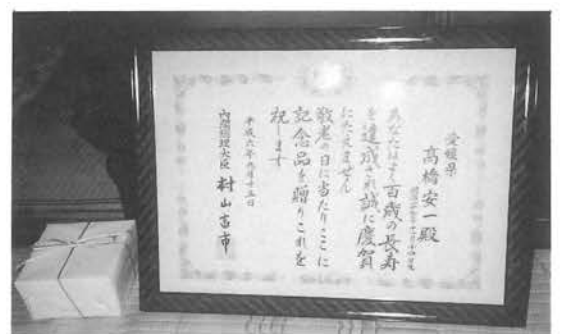 愛媛県
髙橋安一殿
あなたはよく百歳の長寿
を達成され誠に慶賀
にたえません
敬老の日に当たりここに
記念品を贈りこれを
祝します
平成六年九月十五日
内閣総理大臣 村山富市